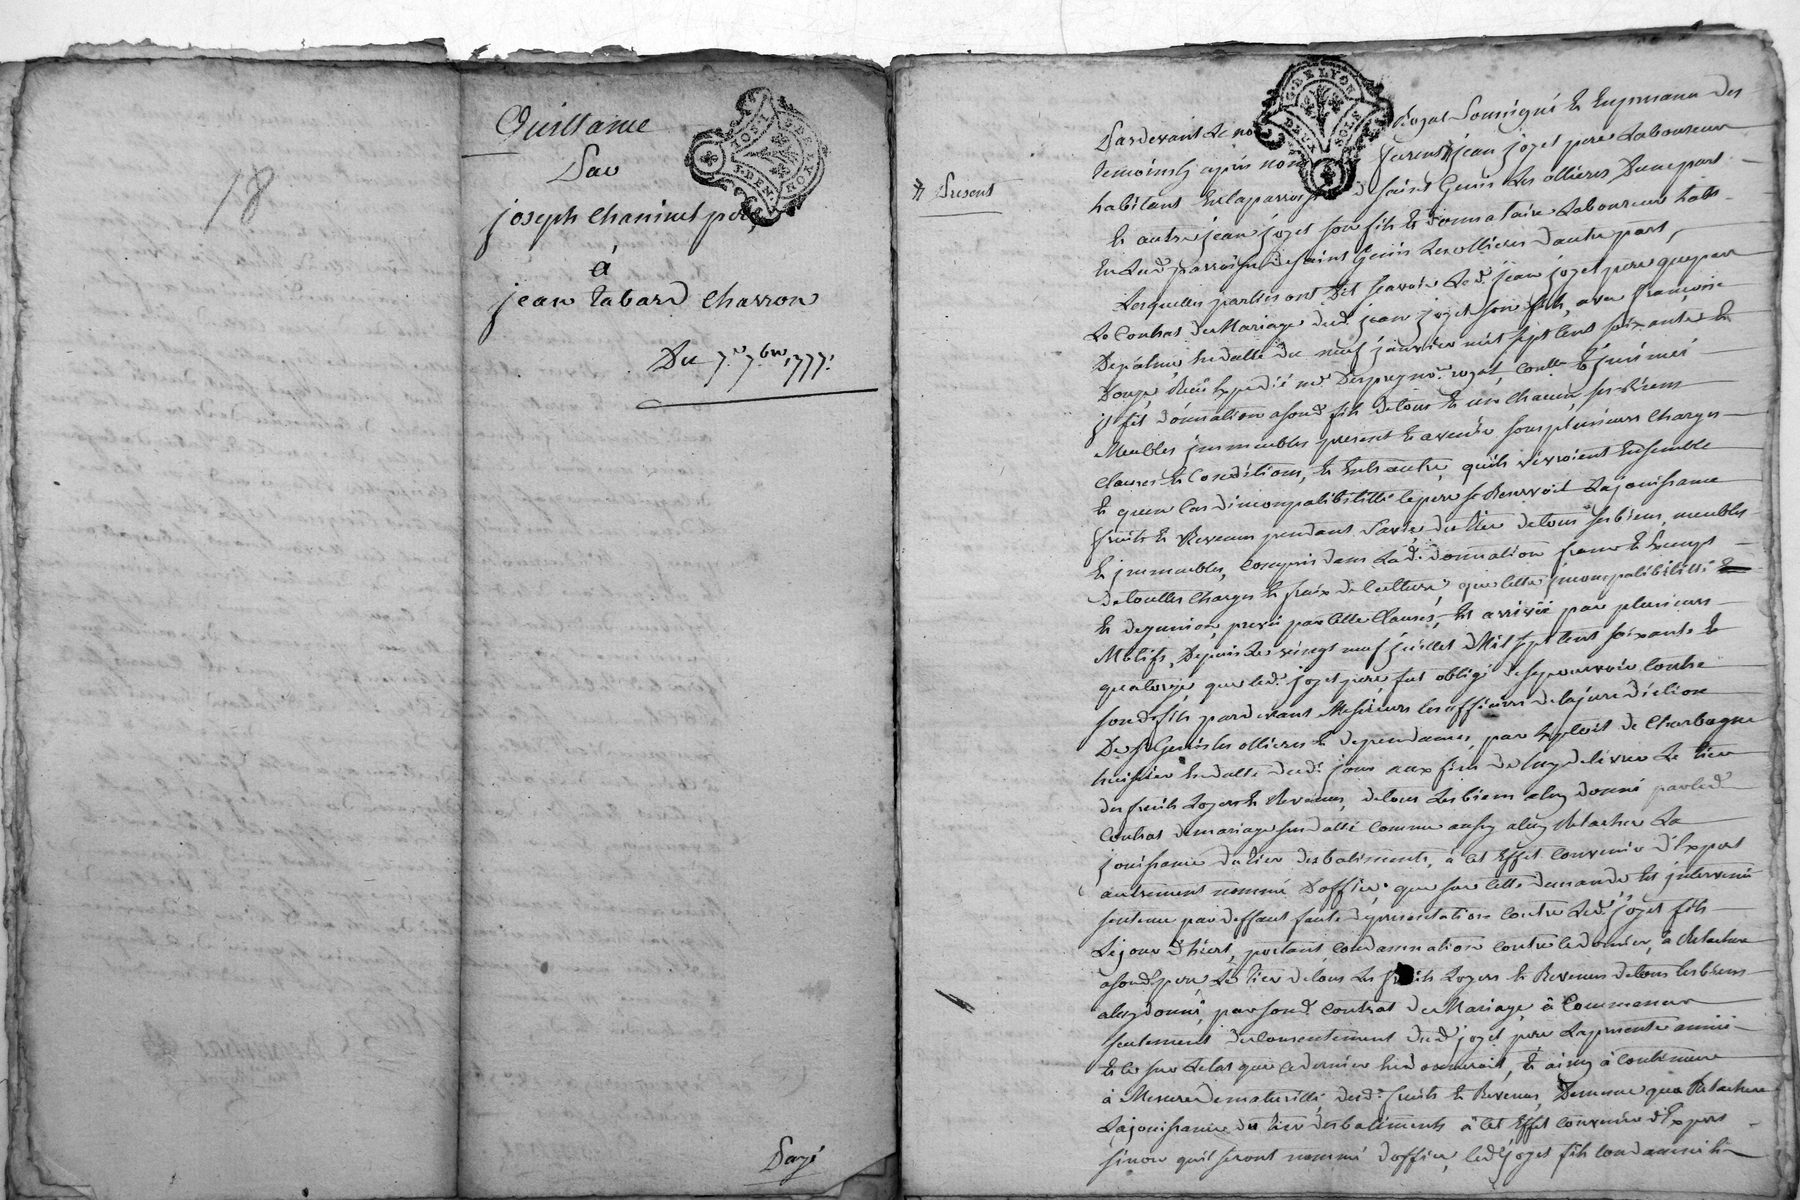 18
Quittance
Par
joseph Chaninet pere
à
jean tabard Charron
Du 7.e 7.bre 1777.
Payé
G. DE LYON
DEUX SOLS
Pardevant le no Royal Soussigné Et En presence des
temoins cy après nom furent jean jozet pere Laboureur
# Present
habitant En la parroisse de saint Genis Les ollieres D'une part
Et autre jean jozet son fils Et donnataire Laboureur habt.
En Lad. parroisse de saint Genis Les ollieres d'autre part,
Lesquelles parties ont dit scavoir Led. jean jozet pere que par
Le Contrat de Mariage dud. jean jozet son fils, avec françoise
Depalme En datte du neuf janvier mil sept cent soixante Et
Douze, Reçu Expedié me Desprez no.re royal, Controllé Et insinué
il fit donnation a son d. fils de tous Et un chacun, ses Biens
Meubles immeubles present Et avenir sous plusieurs Charges
Clauses Et Conditions, Et Entre autre, qu'ils vivroient Ensemble
Et qu'en Cas d'incompatibilitté le pere se Reservoit La jouissance
fruits Et Revenus pendant sa vie du tier de tous ses biens, meubles
Et immeubles, Compris dans Lad. donnation franc Et Exempt
de touttes Charges Et fraix de Culture, que cette jncompatibilitté
Et desunion, prevü par cette Clauses, Est arrivée par plusieurs
Motifs, Depuis Le vingt neuf juillet Mil sept cent soixante Et
quatorze que led. jozet pere fut obligé de se pourvoir contre
son d. fils pardevant Messieurs les officiers de la jurisdiction
De St Genis les ollieres Et dependances, par Exploit de Charbogne
huissier En datte dud. jour aux fins de luy delivrer Le tier
des fruits Loyers Et Revenus, de tous Les biens a luy donné par led.
Contrat de mariage sus datté comme aussy a luy Relacher La
jouissance du tier des batiments, à cet Effet Convenir d'Expert
autrement nommé D'office, que sur cette demande Est intervenü
sentence par deffaut faute de presentation contre Led. jozet fils
Le jour d'hiert, portant Condamnation contre le dernier, a Relacher
a son d. pere, Le tier de tous Les fruits Loyers Et Revenus de tous les biens
a luy donné, par son d. Contrat de Mariage à Commencer
seulement du Consentement dud. jozet pere La presente année
Et ainsy à Continuer
à Mesure de maturitté desd. fruits Et Revenus, De meme que Relacher
La jouissance du tier des batiments à cet Effet Convenir d'Expert
sinon qu'il seront nommé d'office, led. jozet fils Condamné